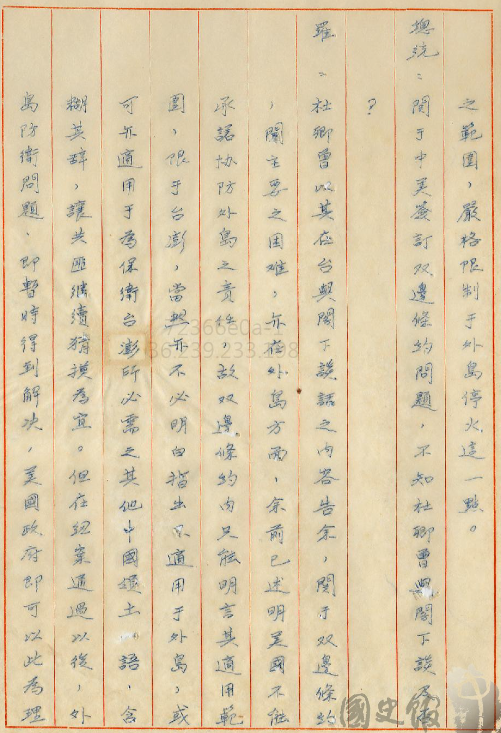 之範圍，嚴格限制于外島停火這一點。
總統：関于中美簽訂双邊條約問題，不知杜卿曾與閣下談及否
？
羅：杜卿曾以其在台與閣下談話之內容告余，関于双邊條約
，関主要之困难，亦在外島方面，余前已述明美國不能
承諾協防外島之責任，故双邊條約內只能明言其適用範
圍，限于台澎，當然亦不必明白指出不適用于外島，或
可亦適用于為保衛台澎所必需之其他中國領土一語，含
糊其辞，讓共匪繼續猜摸為宜。但在紐案通過以後，外
島防衛問題，即暫時得到解決，美國政府即可以此為理
2366e0a-1
36.239.233.208
國史館